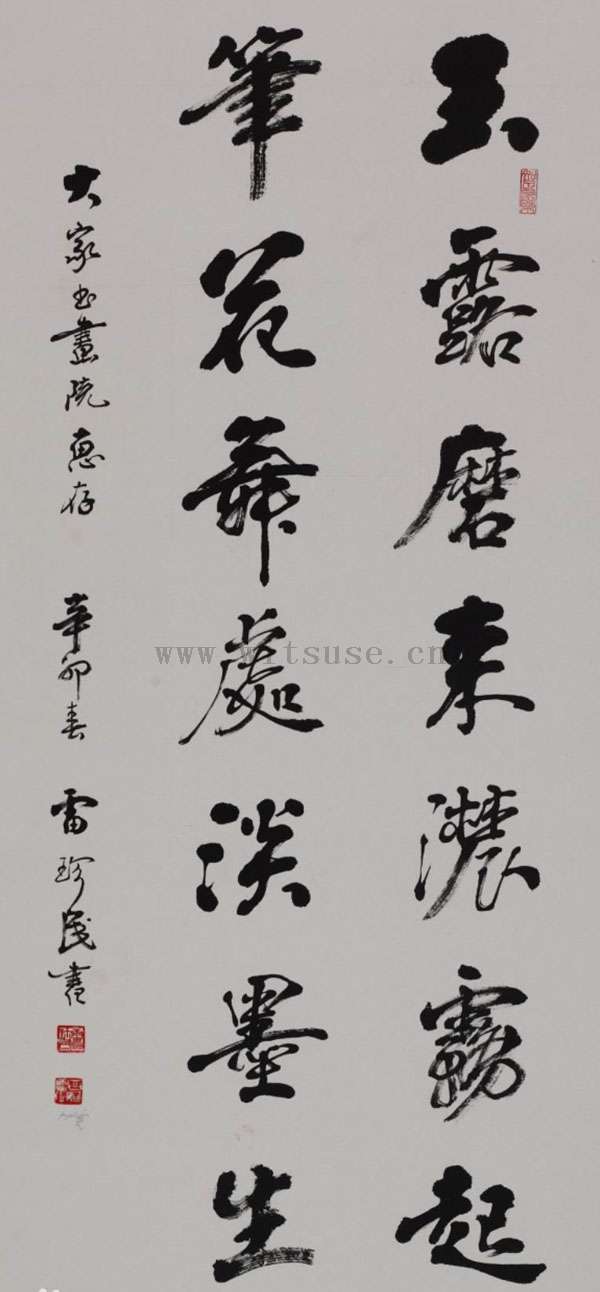 玉露磨来濃霧起
筆花舞處淡墨生
大家书畫院惠存 辛卯春 雷珍民書
www.witsuse.cn